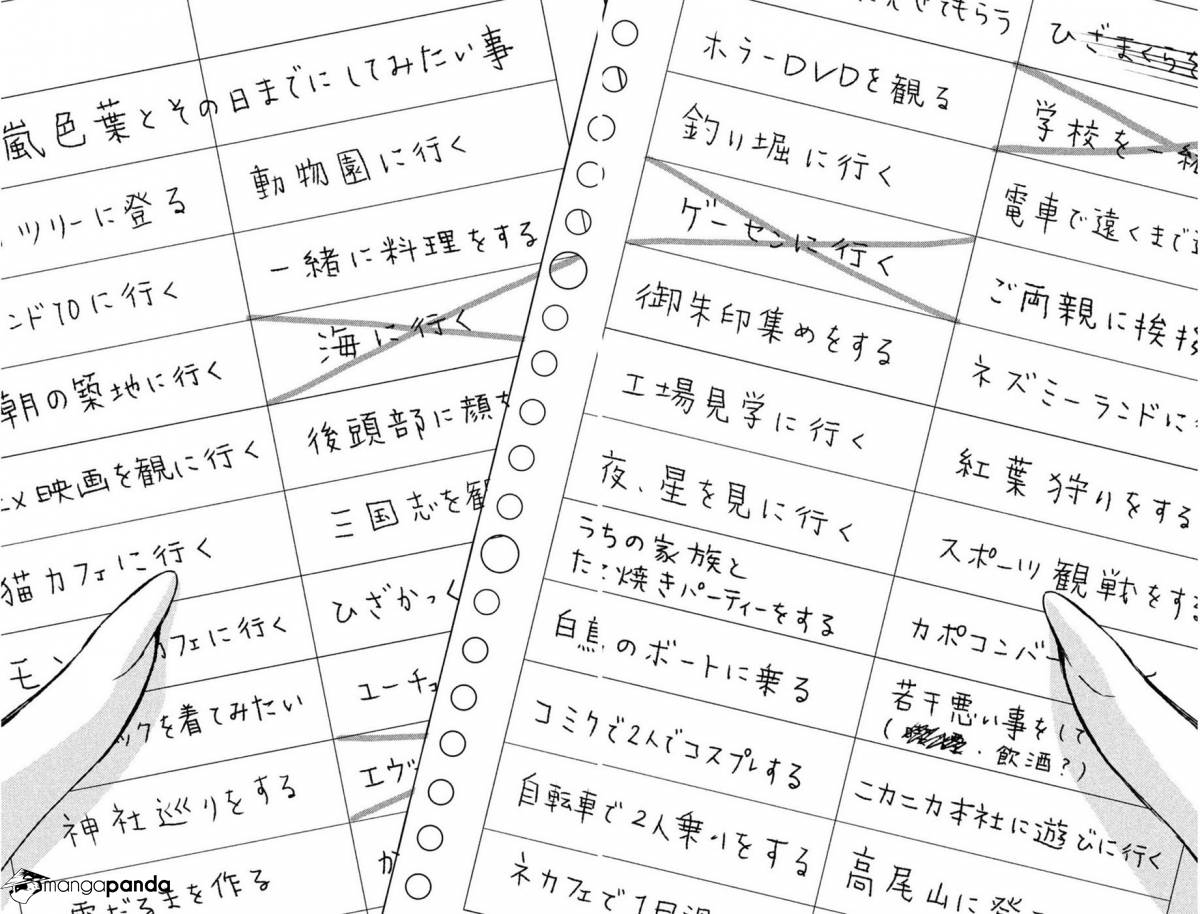 嵐色葉とその日までにしてみたい事
ツリーに登る
ンド70に行く
朝の築地に行く
映画を観に行く
猫カフェに行く
モン
カフェに行く
ックを着てみたい
神社巡りをする
雪だるまを作る
動物園に行く
一緒に料理をする
海に行く
後頭部に顔を
三国志を観
ひざかっく
ユーチュ
エヴ
か
せてもらう
ホラーDVDを観る
釣り堀に行く
ゲーセンに行く
御朱印集めをする
工場見学に行く
夜、星を見に行く
うちの家族と
たこ焼きパーティーをする
白鳥のボートに乗る
コミケで2人でコスプレする
自転車で2人乗りをする
ネカフェで1日過
ひざまくらを
学校を一緒
電車で遠くまで
ご両親に挨拶
ネズミーランドに
紅葉狩りをする
スポーツ観戦をする
カポコンバー
若干悪い事をして
(飲酒?)
ニカニカ本社に遊びに行く
高尾山に登
mangapanda